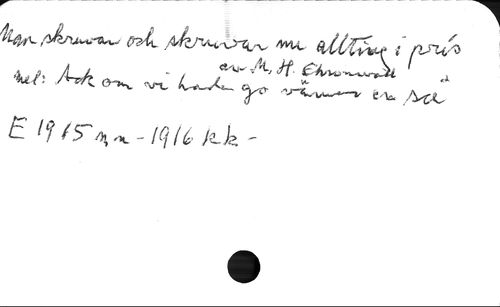 Man skruvar och skruvar nu allting i pris
av M. H. Ehrenwall
mel: Ack om vi hade go vänner en så"
E 1915 nn - 1916 kk -